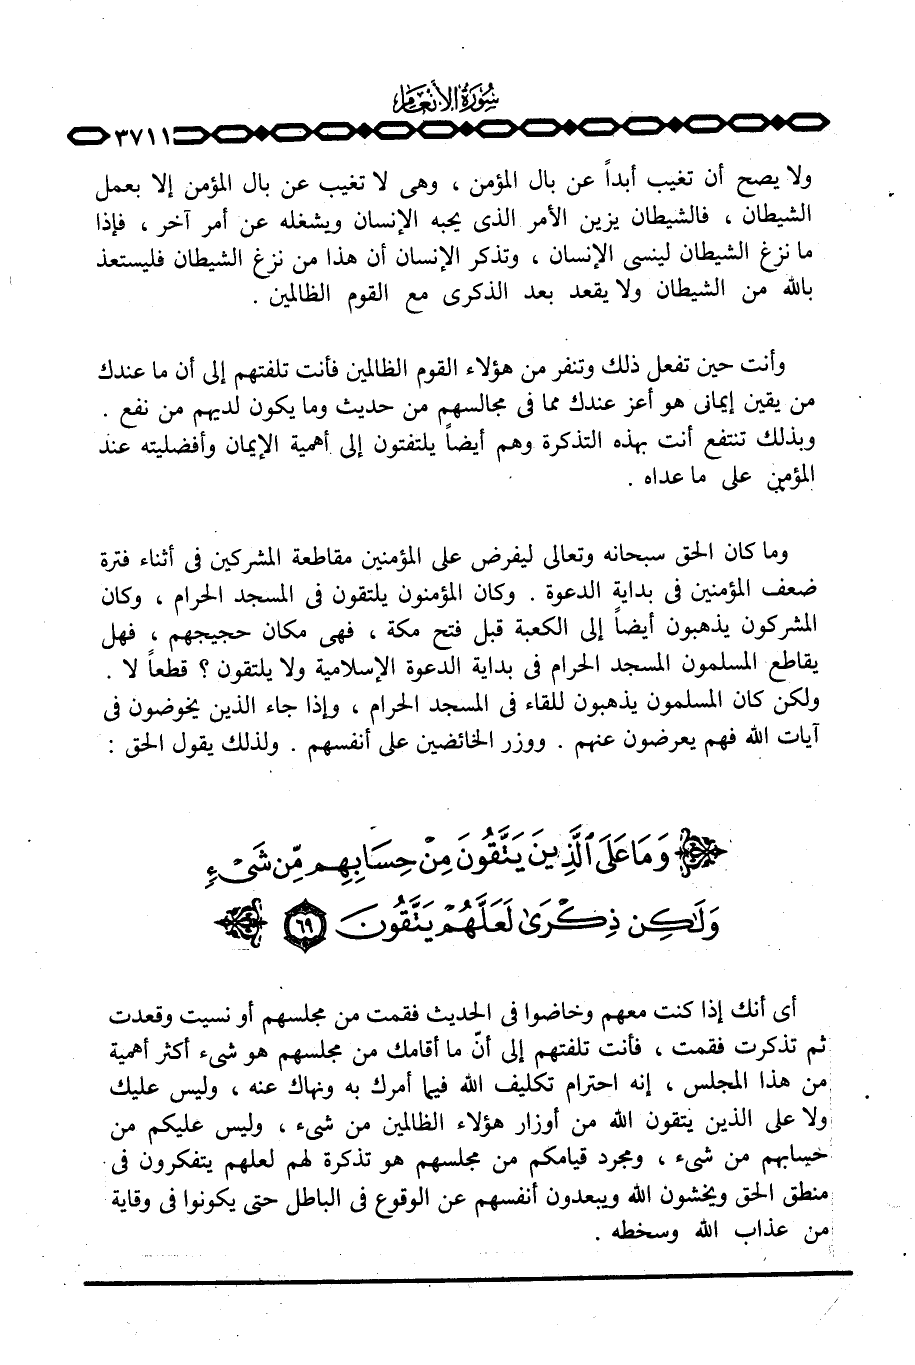 سورة الأنعام
٣٧١١
ولا يصح أن تغيب أبداً عن بال المؤمن ، وهى لا تغيب عن بال المؤمن إلا بعمل
الشيطان ، فالشيطان يزين الأمر الذى يحبه الإنسان ويشغله عن أمر آخر ، فإذا
ما نزغ الشيطان لينسى الإنسان ، وتذكر الإنسان أن هذا من نزغ الشيطان فليستعذ
بالله من الشيطان ولا يقعد بعد الذكرى مع القوم الظالمين .
وأنت حين تفعل ذلك وتنفر من هؤلاء القوم الظالمين فأنت تلفتهم إلى أن ما عندك
من يقين إيمانى هو أعز عندك مما فى مجالسهم من حديث وما يكون لديهم من نفع .
وبذلك تنتفع أنت بهذه التذكرة وهم أيضاً يلتفتون إلى أهمية الإيمان وأفضليته عند
المؤمن على ما عداه .
وما كان الحق سبحانه وتعالى ليفرض على المؤمنين مقاطعة المشركين فى أثناء فترة
ضعف المؤمنين فى بداية الدعوة . وكان المؤمنون يلتقون فى المسجد الحرام ، وكان
المشركون يذهبون أيضاً إلى الكعبة قبل فتح مكة ، فهى مكان حجيجهم ، فهل
يقاطع المسلمون المسجد الحرام فى بداية الدعوة الإسلامية ولا يلتقون ؟ قطعاً لا .
ولكن كان المسلمون يذهبون للقاء فى المسجد الحرام ، وإذا جاء الذين يخوضون فى
آيات الله فهم يعرضون عنهم . ووزر الخائضين على أنفسهم . ولذلك يقول الحق :
وَمَا عَلَى ٱلَّذِينَ يَتَّقُونَ مِنْ حِسَابِهِم مِّن شَىْءٍ
وَلَـٰكِن ذِكْرَىٰ لَعَلَّهُمْ يَتَّقُونَ ٦٩
أى أنك إذا كنت معهم وخاضوا فى الحديث فقمت من مجلسهم أو نسيت وقعدت
ثم تذكرت فقمت ، فأنت تلفتهم إلى أنّ ما أقامك من مجلسهم هو شىء أكثر أهمية
من هذا المجلس ، إنه احترام تكليف الله فيما أمرك به ونهاك عنه ، وليس عليك
ولا على الذين يتقون الله من أوزار هؤلاء الظالمين من شىء ، وليس عليكم من
حسابهم من شىء ، ومجرد قيامكم من مجلسهم هو تذكرة لهم لعلهم يتفكرون فى
منطق الحق ويخشون الله ويبعدون أنفسهم عن الوقوع فى الباطل حتى يكونوا فى وقاية
من عذاب الله وسخطه .